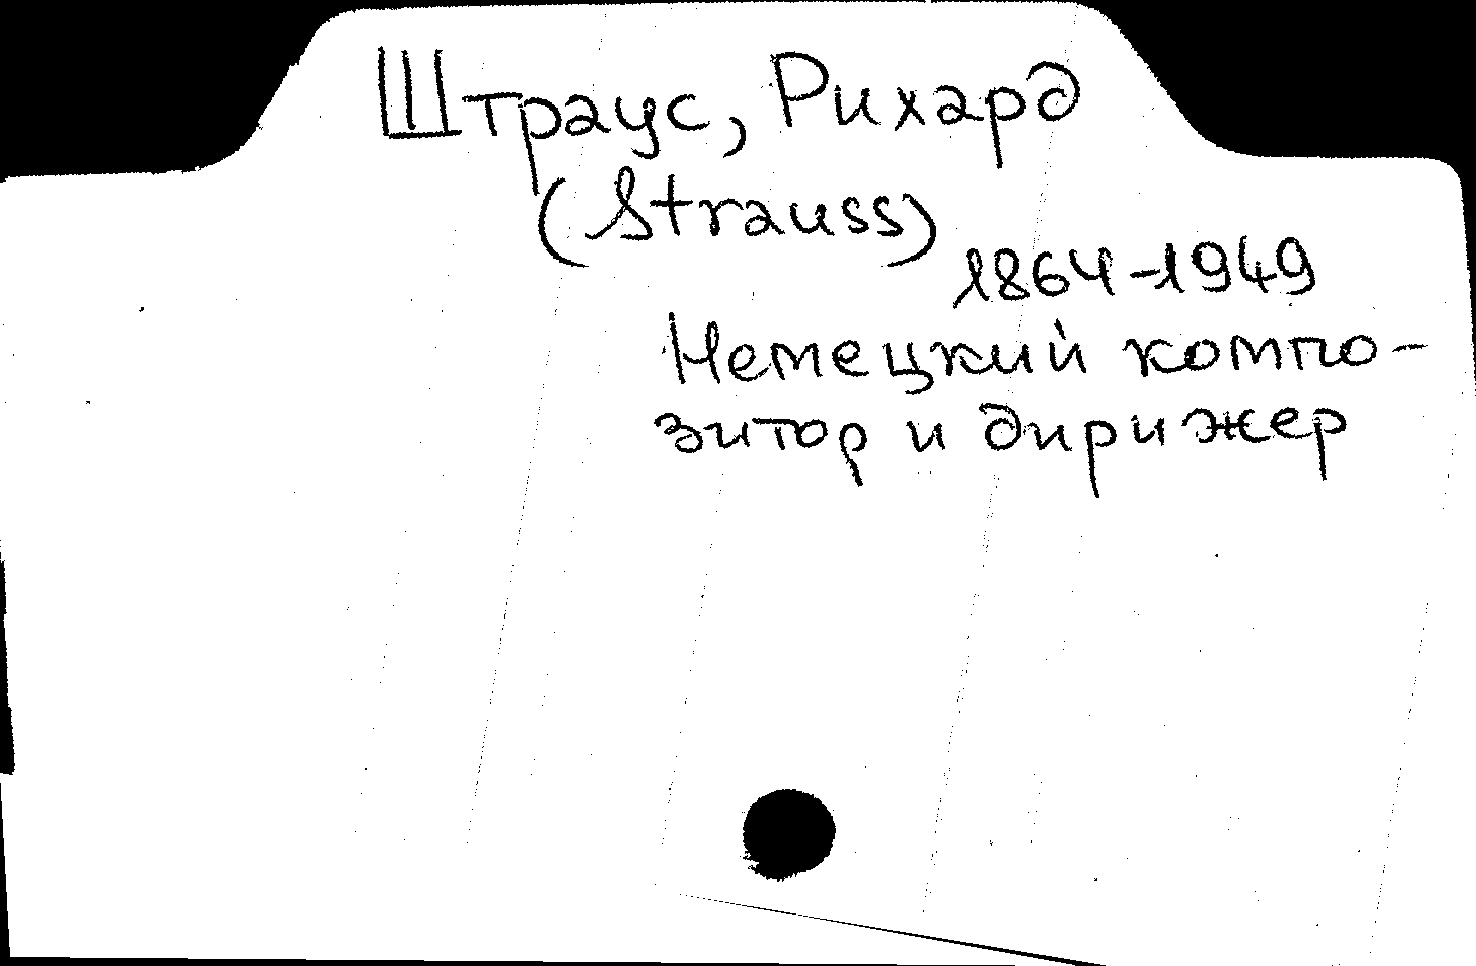 Штраус, Рихард
(Strauss)
1864-1949
Немецкий компо-
зитор и дирижер